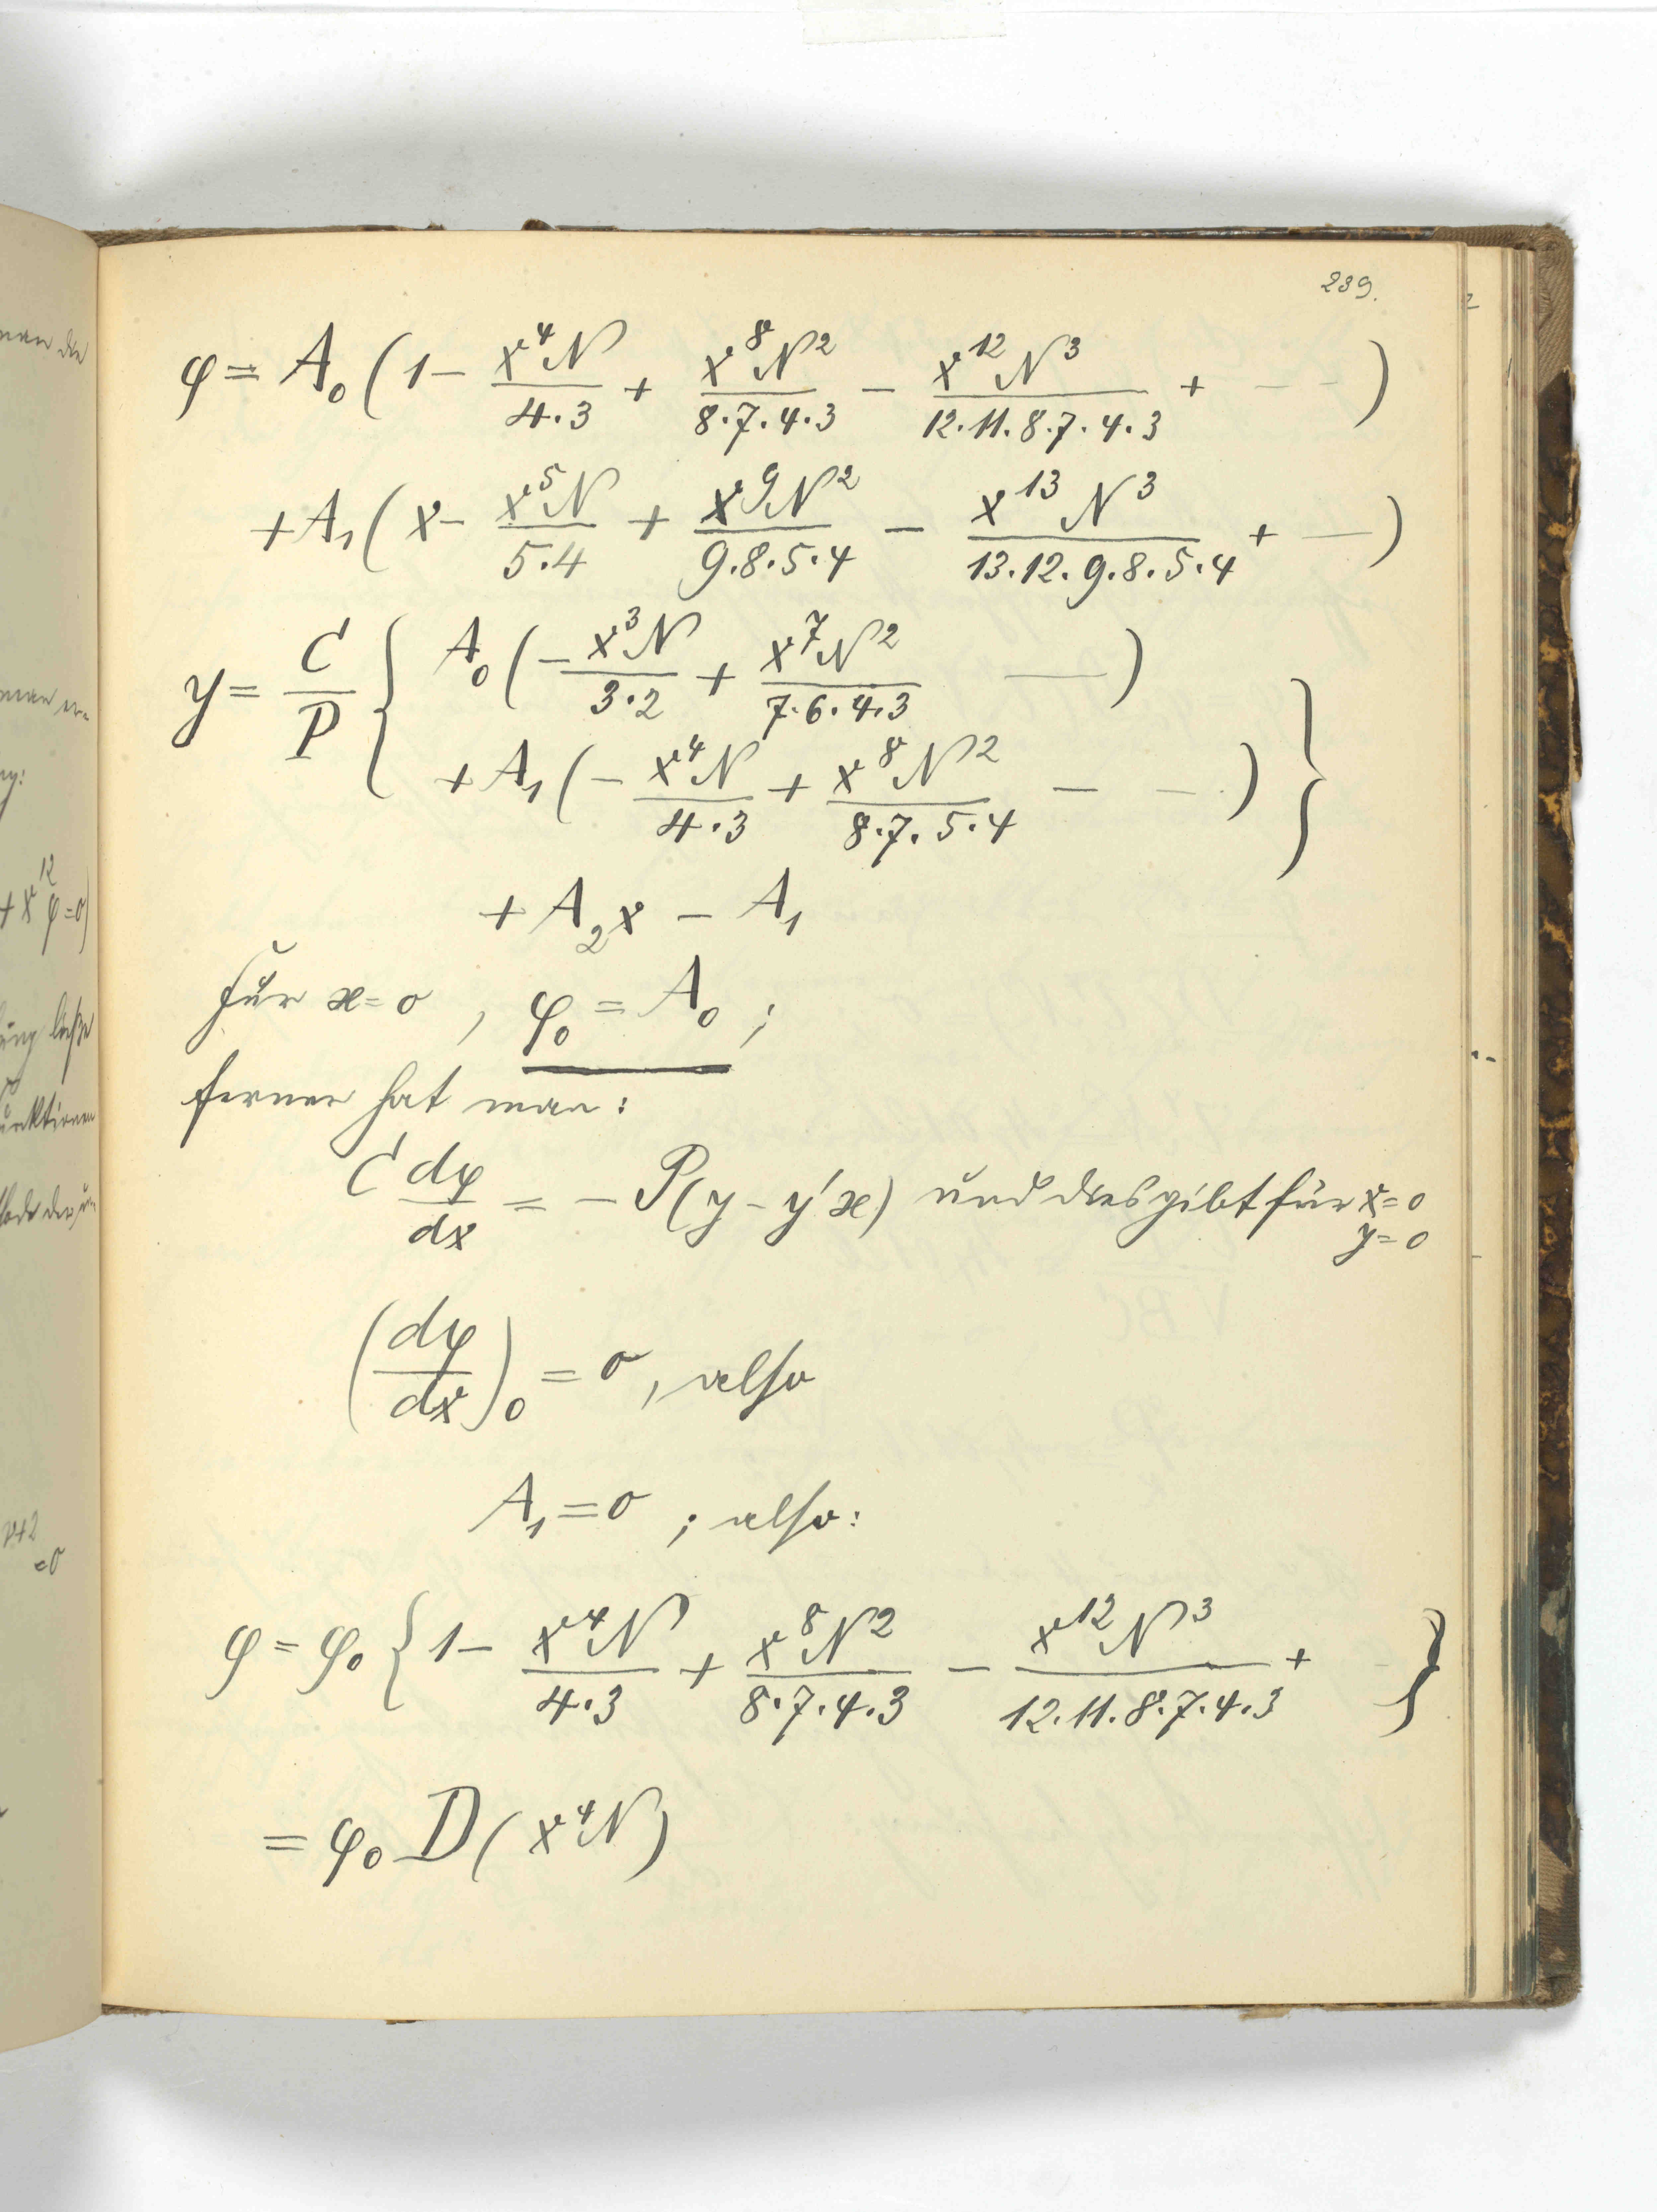 239.
φ = A₀ (1 − x⁴N/4·3 + x⁸N²/8·7·4·3 − x¹²N³/12·11·8·7·4·3 + − − )
+ A₁ ( x − x⁵N/5·4 + x⁹N²/9·8·5·4 − x¹³N³/13·12·9·8·5·4 + — )
y = C/P { A₀ (− x³N/3·2 + x⁷N²/7·6·4·3 — )
+ A₁ (− x⁴N/4·3 + x⁸N²/8·7·5·4 − − · ) }
+ A₂x − A₁
für x=0 , φ₀ = A₀ ;
ferner hat man:
C dφ/dx = − P(y − y'x) und dies gibt für x=0
y=0
(dφ/dx)₀ = 0, also
A₁ = 0 ; also:
φ = φ₀ { 1 − x⁴N/4·3 + x⁸N²/8·7·4·3 − x¹²N³/12·11·8·7·4·3 + }
= φ₀ D( x⁴N)